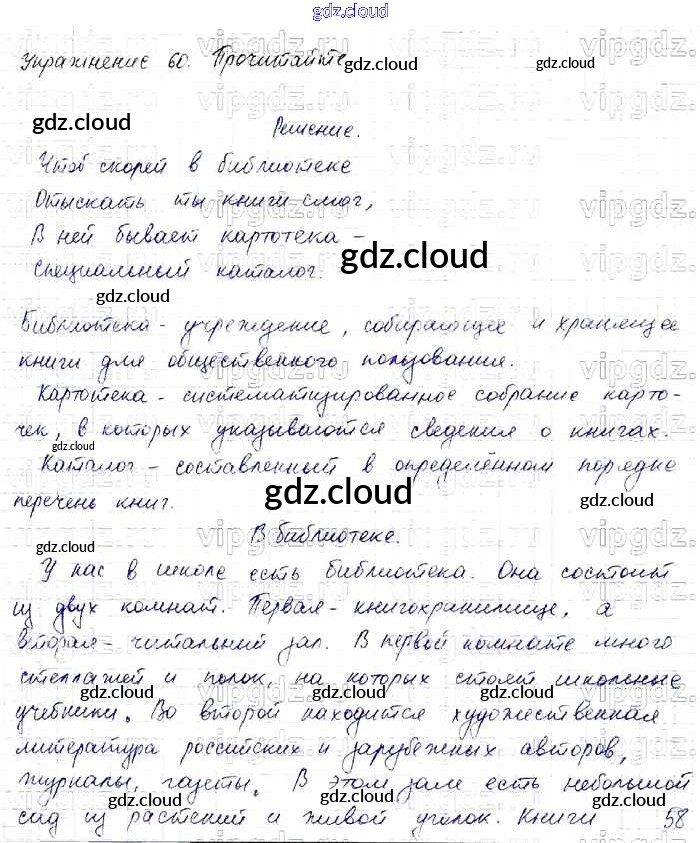 gdz.cloud
Упражнение 60. Прочитайте
Решение.
Чтоб скорей в библиотеке
Отыскать ты книги смог,
В ней бывает картотека –
специальный каталог.
Библиотека - учреждение, собирающее и хранящее
книги для общественного пользования.
Картотека - систематизированное собрание карто-
чек, в которых указываются сведения о книгах.
Каталог - составленный в определённом порядке
перечень книг.
В библиотеке.
У нас в школе есть библиотека. Она состоит
из двух комнат. Первая - книгохранилище, а
вторая - читальный зал. В первой комнате много
стеллажей и полок, на которых стоят школьные
учебники. Во второй находится художественная
литература российских и зарубежных авторов,
журналы, газеты. В этом зале есть небольшой
сад из растений и живой уголок. Книги 58